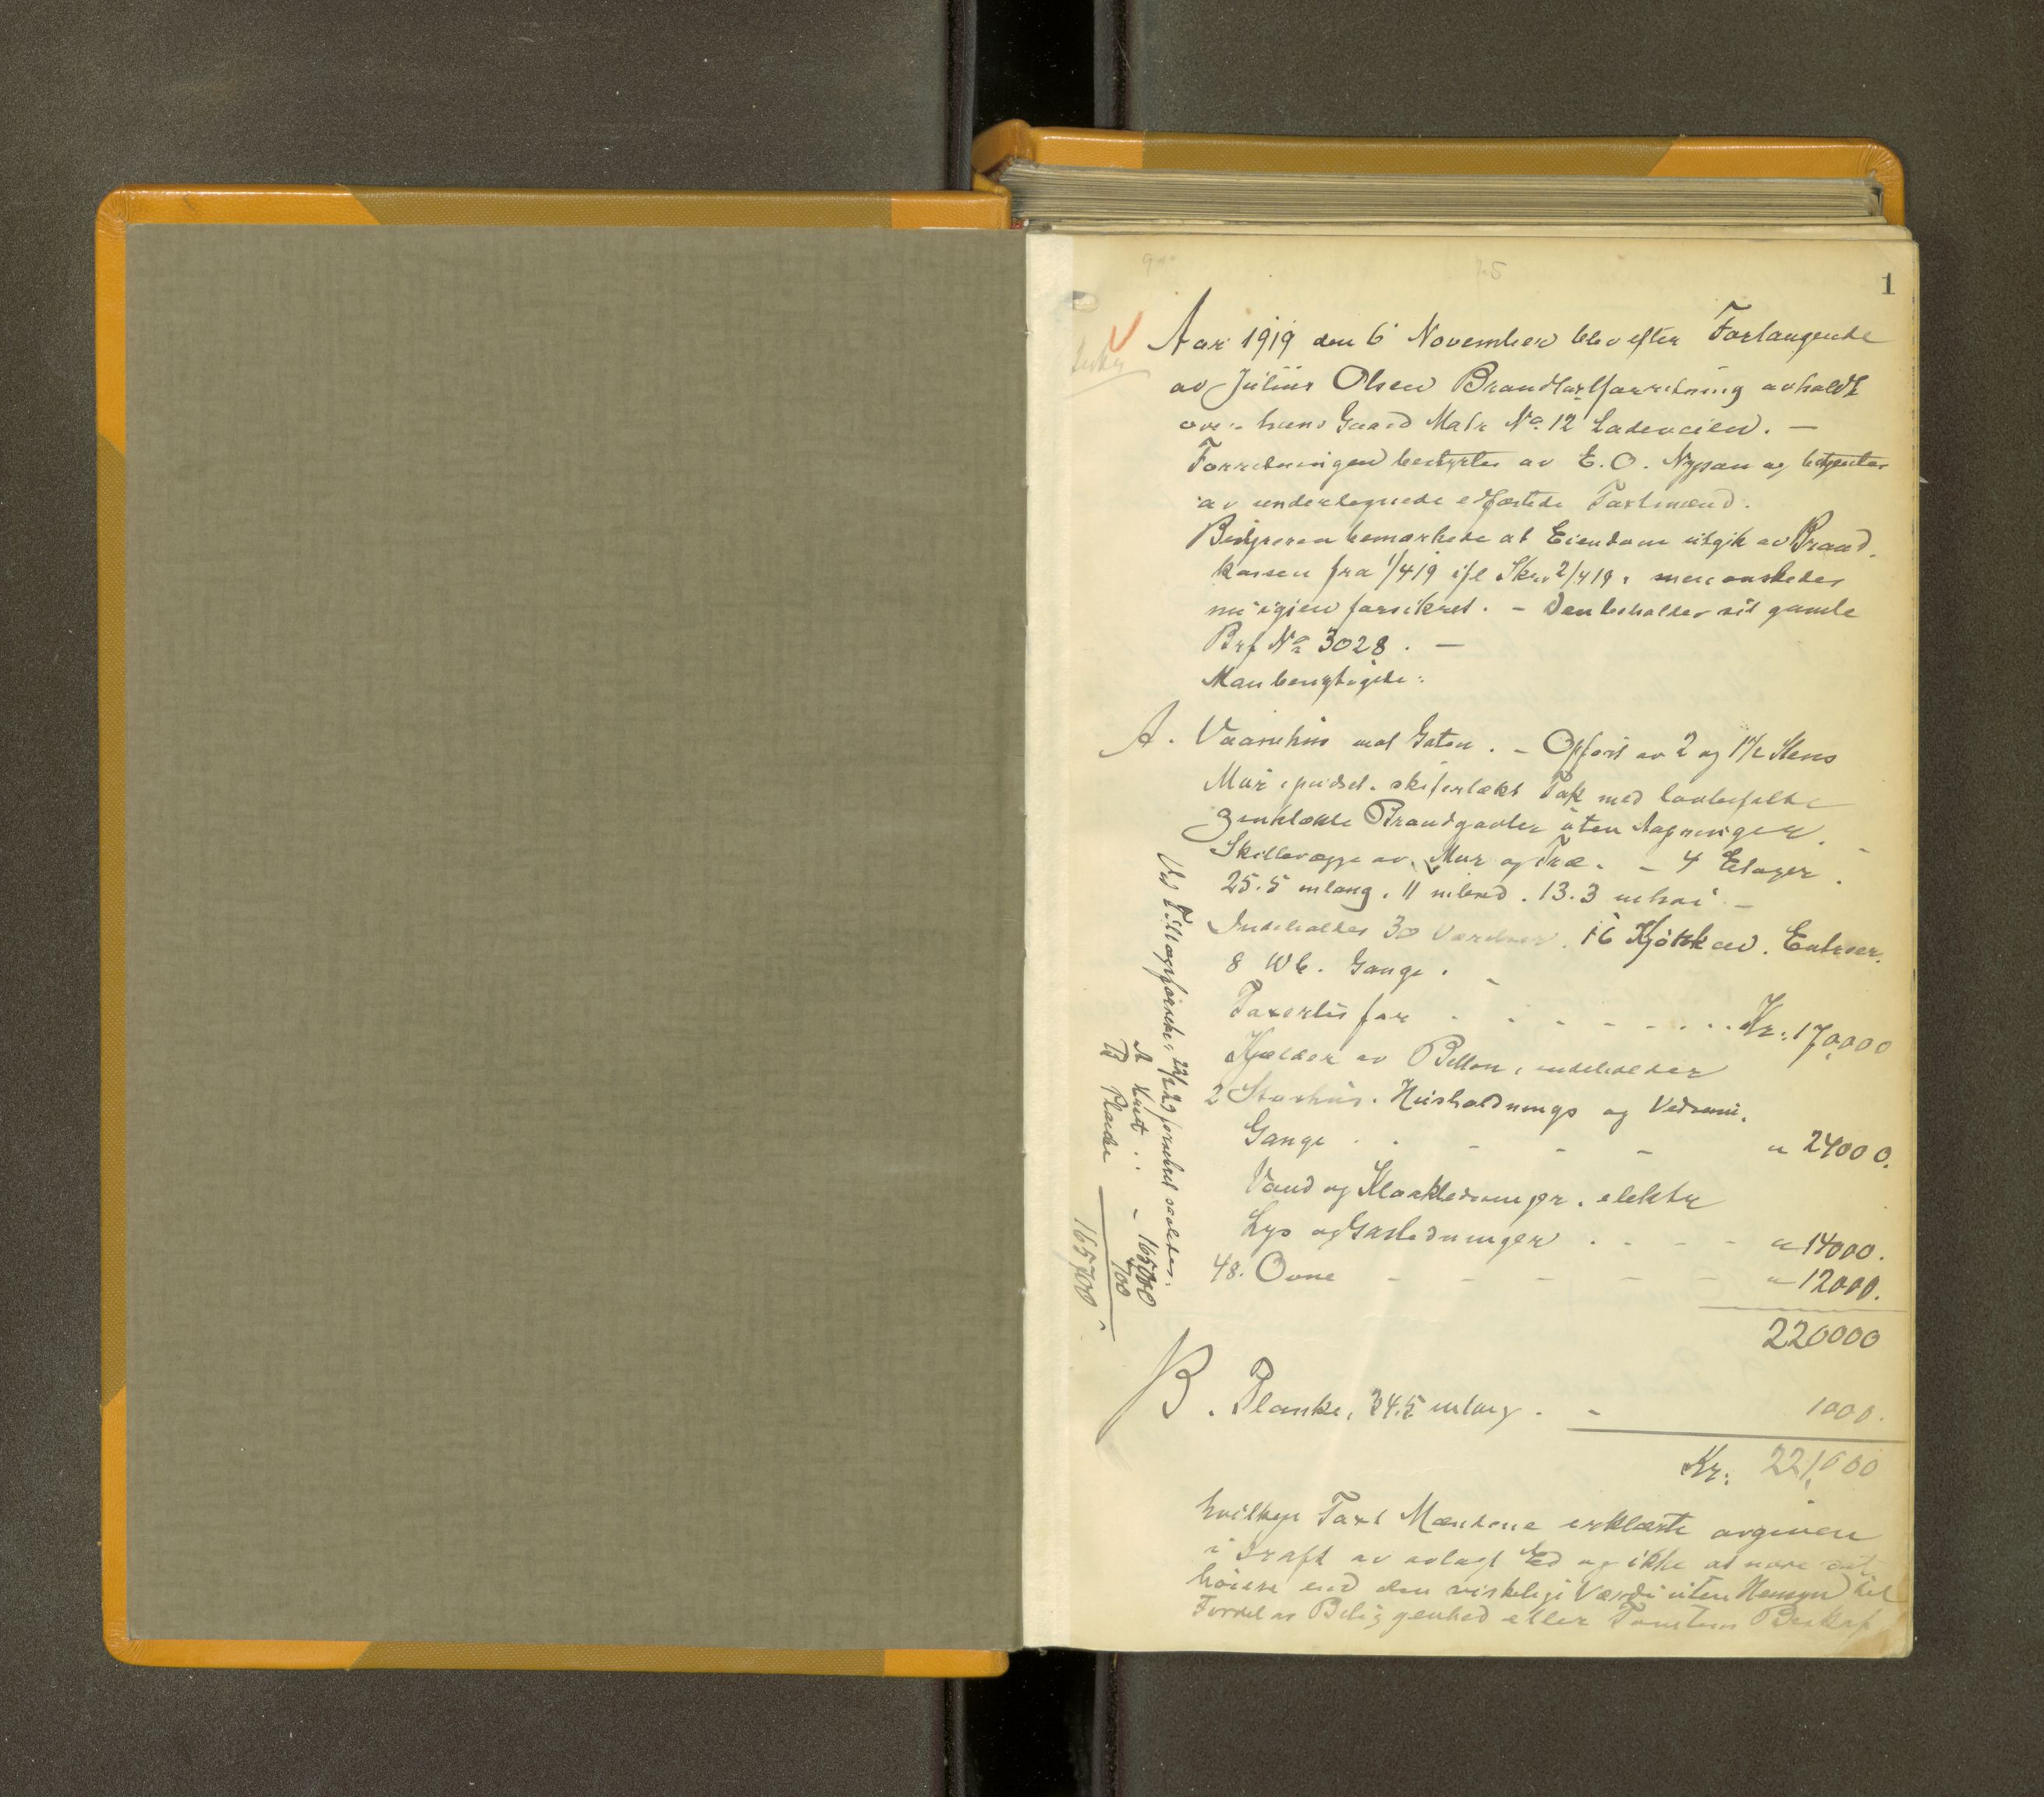 1
Aar 1919 den 6 November blev efter Forlangende
av Julius Olsen Brandtaxtforretning avholdt
over hans Gaard Matr No. 12 Ladeveien. —
Forretningen bestyrtes av E. O. Nypan og betjentes
av undertegnede edfæstede Taxtmænd.
Bestyreren bemærkede at Eiendom utgik av Brand
kassen fra 1/4 19 ifl Skr. 2/4 19, men ønskedes
nu igjen forsikret. — Den beholder sit gamle
Brf No 3028. —
Man besigtigede:
A. Vaanehus mot Gaten. — Opført av 2 og 1½ Stens
Mur, pudset, skifertækt Tak med lovbefalte
zinktækte Brandgavler uten Aapninger. —
Skillevægge av Mur og Træ. — 4 Etager.
25.5 m lang, 11 m bred. 13.3 m høi —
Indeholder 30 Værelser. 16 Kjøkken. Entreer.
8 Wc. Gange. —
Taxertes for . . . . . Kr. 170,000
Kjelder av Betton, indeholder
2 Husholdnings og Vedrum.
Gange . . — — — „ 24000.
Vand og Kloakledninger, elektr
Lys og Gasledninger . . . — „ 14000.
48. Ovne — — — — — „ 12000.
220000
B. Planke, 34.5 m lang. — 1000.
Kr. 221,000
hvilken Taxt Mændene erklærte avgiven
i Kraft av avlagt Ed og ikke at være sat
høiere end den virkelige Værdi uten Hensyn til
Fordel av Beliggenhed eller Tomtens Beskaf
Ved Tillægsforretn. 22/2 23 forretnet saaledes:
A Huset . . — 165000
B Planke 700
165700